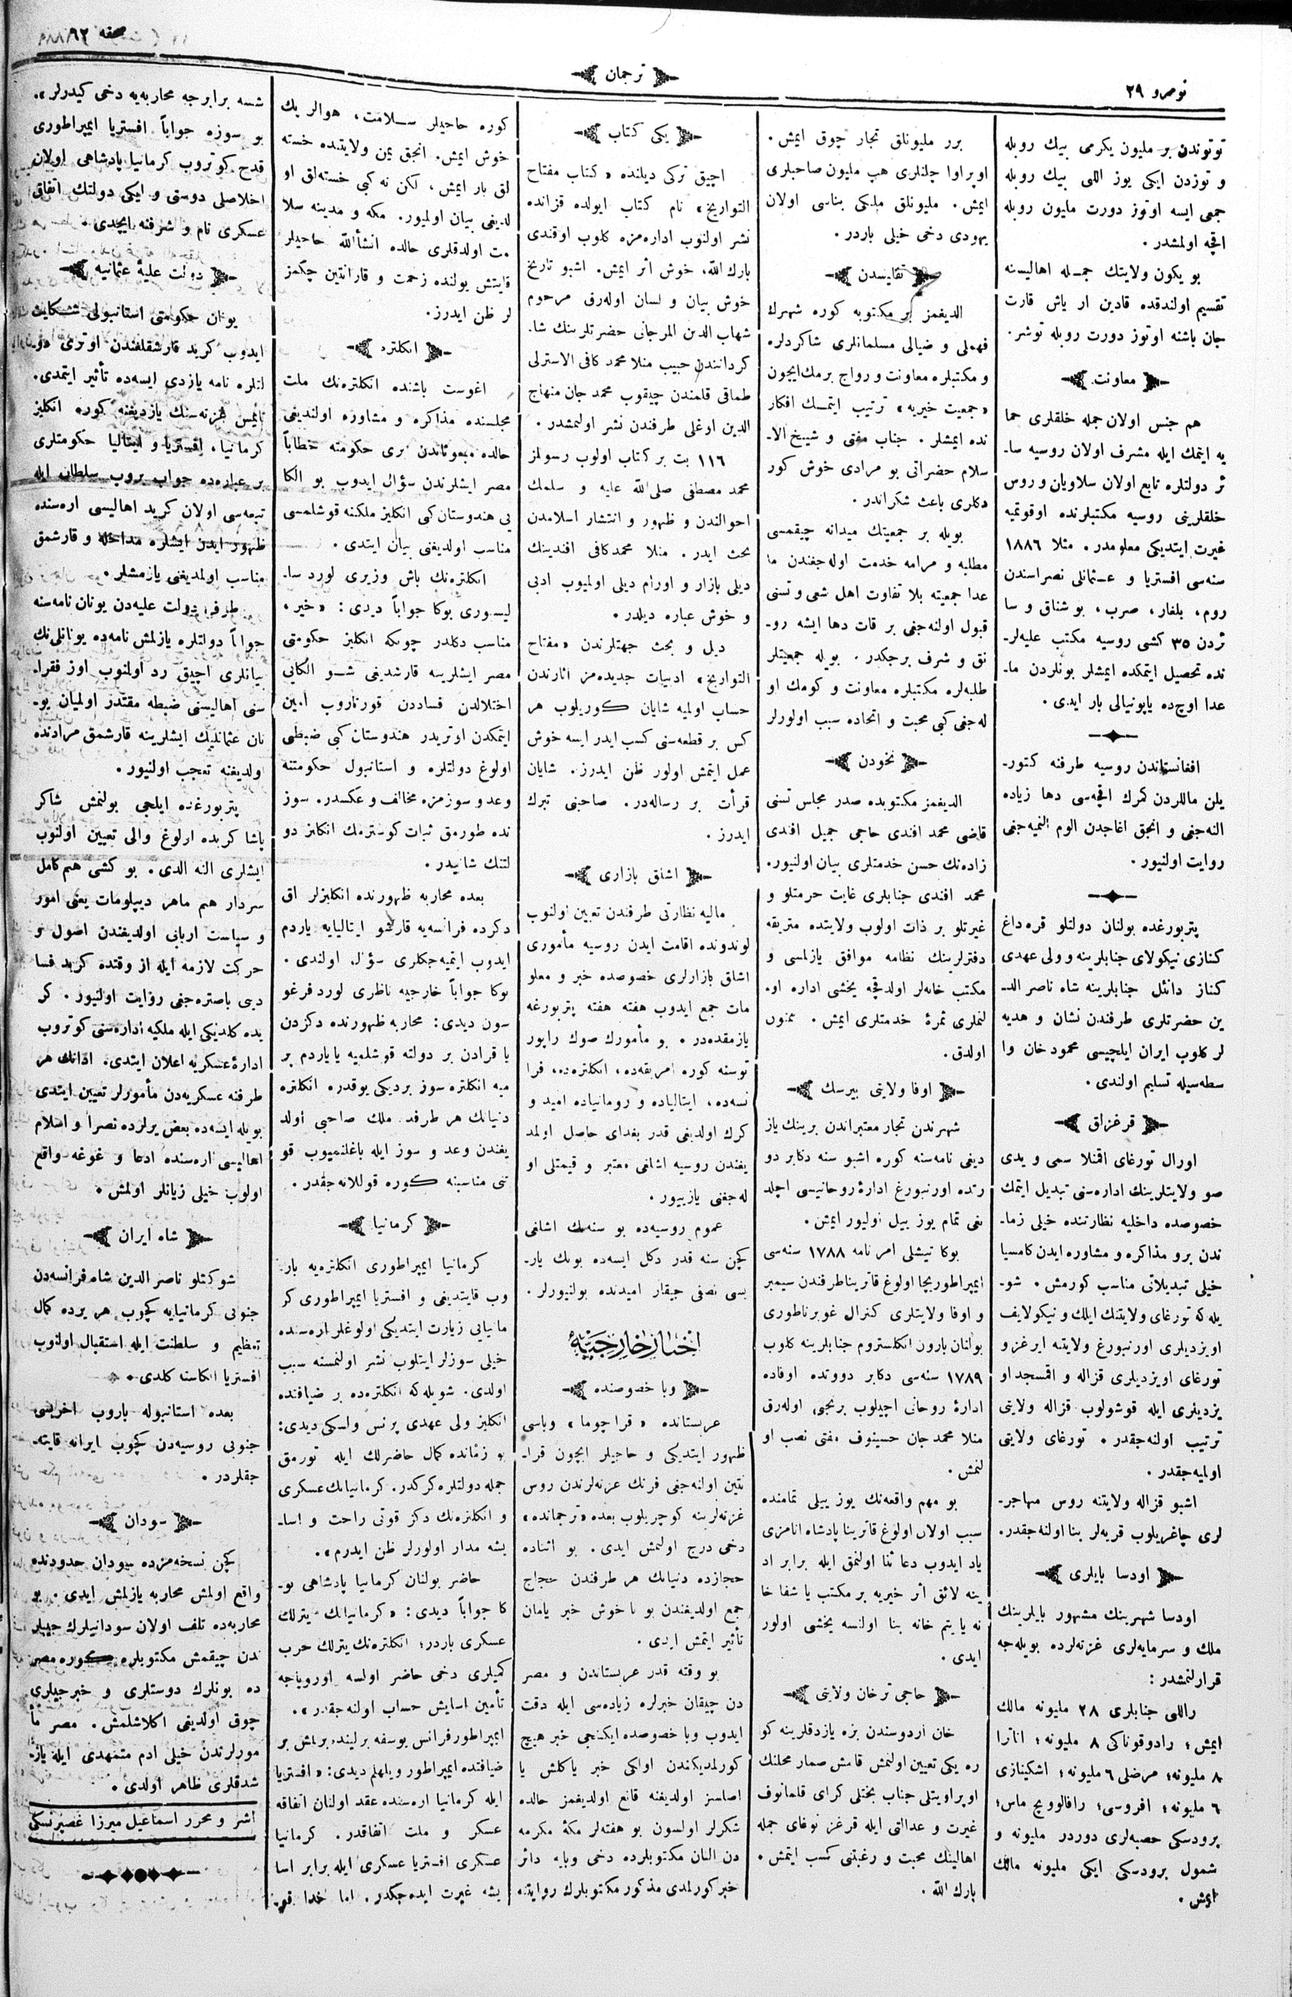 نومرو ٢٩
ترجمان
صحفه ٩٢
توتوندن بر مليون يكرمى بيك روبله
و توزدن ايكى يوز اللى بيك روبله
جمعى ايسه اوتوز دورت مليون روبله
اقچه اولمشدر.
بو يكون ولايتك جمله اهاليسنه
تقسيم اولندقده قادين ار ياش قارت
جان باشنه اوتوز دورت روبله توشر.
معاونت
هم جنس اولان جمله خلقلرى حما
يه ايتمك ايله مشرف اولان روسيه سا-
ئر دولتلره تابع اولان سلاويان و روس
خلقلرينى روسيه مكتبلرنده اوقوتميه
غيرت ايتديكى معلومدر. مثلا ١٨٨٦
سنه‌سى افستريا و عثمانلى نصراسندن
روم، بلغار، صرب، بوشناق و سا
ئردن ٣٥ كشى روسيه مكتب عليه‌لر-
نده تحصيل ايتمكده ايمشلر بونلردن ما-
عدا اوچ‌ده ياپونيالى بار ايدى.
افغانستاندن روسيه طرفنه كتور-
يلن ماللردن كمرك اقچه‌سى دها زياده
النه‌جغى و انجق اغاجدن الوم النميه‌جغى
روايت اولنيور.
پتربورغده بولنان دولتلو قره داغ
كنازى نيكولاى جنابلرينه و ولى عهدى
كناز دانئل جنابلرينه شاه ناصر الد-
ين حضرتلرى طرفندن نشان و هديه
لر كلوب ايران ايلچيسى محمود خان وا
سطه‌سيله تسليم اولندى.
قرغزاق
اورال تورغاى اقمنلا سمى و يدى
صو ولايتلرينك اداره‌سنى تبديل ايتمك
خصوصده داخليه نظارتنده خيلى زما-
ندن برو مذاكره و مشاوره ايدن كامسيا
خيلى تبديلاتى مناسب كورمش. شو-
يله كه تورغاى ولايتنك ايلك و نيكولايف
اويزديلرى اورنبورغ ولايتنه ايرغز و
تورغاى اويزديلرى قزاله و اقمسجد او
يزديلرى ايله قوشولوب قزاله ولايتى
ترتيب اولنه‌جقدر. تورغاى ولايتى
اوليه‌جقدر.
اشبو قزاله ولايتنه روس مهاجر-
لرى چاغريلوب قريه‌لر بنا اولنه‌جقدر.
اودسا بايلرى
اودسا شهرينك مشهور بايلرينك
ملك و سرمايه‌لرى غزته‌لرده بويله‌جه
قرارلنمشدر:
راللى جنابلرى ٢٨ مليونه مالك
ايمش؛ رادوقوناكى ٨ مليونه؛ اناترا
٨ مليونه؛ مرضلى ٦ مليونه؛ اشكينازى
٦ مليونه؛ افروسى؛ رافالوويچ ماس؛
برودسكى حصبه‌لرى دوردر مليونه و
شمول برودسكى ايكى مليونه مالك
ايمش.
برر مليونلق تجار چوق ايمش.
اوپراوا چلنلرى هپ مليون صاحبلرى
ايمش. مليونلق ملكى بناسى اولان
يهودى دخى خيلى باردر.
تفليسدن
الديغمز بر مكتوبه كوره شهرك
فهملى و ضيالى مسلمانلرى شاكردلره
و مكتبلره معاونت و رواج برمك ايچون
«جمعيت خيريه» ترتيب ايتمك افكار
نده ايمشلر. جناب مفتى و شيخ الا-
سلام حضراتى بو مرادى خوش كور
دكلرى باعث شكراندر.
بويله بر جمعيتك ميدانه چيقمسى
مطلبه و مرامه خدمت اوله‌جغندن ما
عدا جمعيته بلا تفاوت اهل شعى و تسنى
قبول اولنه‌جغى بر قات دها ايشه رو-
نق و شرف برجكدر. بويله جمعيتلر
طلبه‌لره مكتبلره معاونت و كومك او
له‌جغى كبى محبت و اتحاده سبب اولورلر
نخودن
الديغمز مكتوبده صدر مجلس تسنى
قاضى محمد افندى حاجى جميل افندى
زاده‌نك حسن خدمتلرى بيان اولنيور.
محمد افندى جنابلرى غايت حرمتلو و
غيرتلو بر ذات اولوب ولايتده متريقه
دفترلرينك نظامه موافق يازلمسى و
مكتب خانه‌لر اولدقچه يخشى اداره او-
لنملرى ثمرهٔ خدمتلرى ايمش. ممنون
اولدق.
اوفا ولايتى بيرسك
شهرندن تجار معتبراندن برينك ياز
ديغى نامه‌سنه كوره اشبو سنه دكابر دو
رتده اورنبورغ ادارهٔ روحانيسى اچلد
يغى تمام يوز ييل اوليور ايمش.
بوكا تيشلى امر نامه ١٧٨٨ سنه‌سى
ايمپراطوريچا اولوغ قاترينا طرفندن سيمبر
و اوفا ولايتلرى كنرال غوبرناطورى
بولنان بارون انكلستروم جنابلرينه كلوب
١٧٨٩ سنه‌سى دكابر دوونده اوفاده
ادارهٔ روحانى اچيلوب برنجى اوله‌رق
منلا محمد جان حسينوف مفتى نصب او
لنمش.
بو مهم واقعه‌نك يوز ييلى تمامنده
سبب اولان اولوغ قاترينا پادشاه انامزى
ياد ايدوب دعا ثنا اولنمق ايله برابر اد
ينه لائق اثر خيريه بر مكتب يا شفا خا
نه يا يتم خانه بنا اولنسه يخشى اولور
ايدى.
حاجى ترخان ولايتى
خان اردوسندن بزه يازدقلرينه كو
ره يكى تعيين اولنمش قامش صمار محلنك
اوپراويتلى جناب بختلى كراى قلمانوف
غيرت و عدالتى ايله قرغز نوغاى جمله
اهالينك محبت و رغبتنى كسب ايتمش.
بارك الله.
يكى كتاب
اچيق تركى ديلنده «كتاب مفتاح
التواريخ» نام كتاب ايولده قزانده
نشر اولنوب اداره‌مزه كلوب اوقندى
بارك الله، خوش اثر ايمش. اشبو تاريخ
خوش بيان و لسان اوله‌رق مرحوم
شهاب الدين المرجانى حضرتلرينك شا-
كردانندن حبيب منلا محمد كافى الاسترلى
طماقى قلمندن چيقوب محمد جان منهاج
الدين اوغلى طرفندن نشر اولنمشدر.
١١٦ بت بر كتاب اولوب رسولمز
محمد مصطفى صلى الله عليه و سلمك
احوالندن و ظهور و انتشار اسلامدن
بحث ايدر. منلا محمد كافى افندينك
ديلى بازار و اورام ديلى اولميوب ادبى
و خوش عباره ديلدر.
ديل و بحث جهتلرندن «مفتاح
التواريخ» ادبيات جديده‌مز اثارندن
حساب اولميه شايان كوريلوب هر
كس بر قطعه‌سنى كسب ايدر ايسه خوش
عمل ايتمش اولور ظن ايدرز. شايان
قرأت بر رساله‌در. صاحبنى تبرك
ايدرز.
اشلق بازارى
ماليه نظارتى طرفندن تعيين اولنوب
لوندونده اقامت ايدن روسيه مأمورى
اشلق بازارلرى خصوصده خبر و معلو
مات جمع ايدوب هفته هفته پتربورغه
يازمقده‌در. بو مأمورك صوك راپور
توسنه كوره امريقه‌ده، انكلتره‌ده، فرا
نسه‌ده، ايتالياده و رومانياده اميد و
كرك اولديغى قدر بغداى حاصل اولمد
يغندن روسيه اشلغى معتبر و قيمتلى او
له‌جغنى يازيبور.
عموم روسيه‌ده بو سنه‌نك اشلغى
كچن سنه قدر دكل ايسه‌ده بونك يار-
يسى نصفى چيقار اميدنده بولنيورلر.
اخبار خارجيه
وبا خصوصنده
عربستانده «قراچوما» وباسى
ظهور ايتديكى و حاجيلر ايچون قرا-
نتين اولنه‌جغى فرنك غزته‌لرندن روس
غزته‌لرينه كوچريلوب بعده «ترجمانده»
دخى درج اولنمش ايدى. بو اثناده
حجازده دنيانك هر طرفندن حجاج
جمع اولديغندن بو ناخوش خبر يامان
تأثير ايتمش ايدى.
بو وقته قدر عربستاندن و مصر
دن چيقان خبرلره زياده‌سى ايله دقت
ايدوب وبا خصوصده ايكنجى خبر هيچ
كورلمديكندن اولكى خبر ياكلش يا
اصلسز اولديغنه قانع اولديغمز حالده
شكرلر اولسون بو هفته‌لر مكهٔ مكرمه
دن النان مكتوبلرده دخى وبايه دائر
خبر كورلمدى مذكور مكتوبلرك روايتنه
كوره حاجيلر سلامت، هوالر پك
خوش ايمش. انجق يمن ولايتنده خسته
لق بار ايمش، لكن نه كبى خسته‌لق او
لديغى بيان اولميور. مكه و مدينه سلا
مت اولدقلرى حالده انشأالله حاجيلر
قايتش يولنده زحمت و قارانتين چكمز
لر ظن ايدرز.
انكلتره
اغوست باشنده انكلتره‌نك ملت
مجلسنده مذاكره و مشاوره اولنديغى
حالده مبعوثاندن برى حكومته خطاباً
مصر ايشلرندن سؤال ايدوب بو الكا
يى هندوستان كبى انكليز ملكنه قوشلمسى
مناسب اولديغنى بيان ايتدى.
انكلتره‌نك باش وزيرى لورد سا-
ليسورى بوكا جواباً ديدى: «خير،
مناسب دكلدر چونكه انكليز حكومتى
مصر ايشلرينه قارشديغى شو الكانى
اختلالدن فساددن قورتاروب امين
ايتمكدن اوتريدر هندوستان كبى ضبطى
اولوغ دولتلره و استانبول حكومتنه
وعد و سوزمزه مخالف و عكسدر. سوز
نده طورمق ثبات كوسترمك انكليز دو
لتنك شانيدر.
بعده محاربه ظهورنده انكليزلر اق
دكزده فرانسه‌يه قارشو ايتاليايه ياردم
ايدوب ايتميه‌جكلرى سؤال اولندى.
بوكا جواباً خارجيه ناظرى لورد فرغو
سون ديدى: محاربه ظهورنده دكزدن
يا قرادن بر دولته قوشلميه يا ياردم بر
ميه انكلتره سوز برديكى يوقدر. انكلتره
دنيانك هر طرفنده ملك صاحبى اولد
يغندن وعد و سوز ايله باغلنميوب قو
تنى مناسبنه كوره قوللانه‌جقدر.
كرمانيا
كرمانيا ايمپراطورى انكلتره‌يه بار-
وب قايتديغى و افستريا ايمپراطورى كر
مانيانى زيارت ايتديكى اولوغلر اره‌سنده
خيلى سوزلر ايتلوب نشر اولنمسنه سبب
اولدى. شويله‌كه انكلتره‌ده بر ضيافتده
انكليز ولى عهدى پرنس ولسكى ديدى:
بو زمانده كمال حاضرلك ايله تورمق
جمله دولتلره كركدر. كرمانيانك عسكرى
و انكلتره‌نك دكز قوتى راحت و اسا-
يشه مدار اولورلر ظن ايدرم».
حاضر بولنان كرمانيا پادشاهى بو-
كا جواباً ديدى: «كرمانيانك يترلك
عسكرى باردر؛ انكلتره‌نك يترلك حرب
كميلرى دخى حاضر اولسه اوروپاجه
تأمين اسايش حساب اولنه‌جقدر».
ايمپراطور فرانس يوسفه برلينده برلمش بر
ضيافتده ايمپراطور ويلهلم ديدى: «افستريا
ايله كرمانيا اره‌سنده عقد اولنان اتفاقه
عسكر و ملت اتفاقدر. كرمانيا
عسكرى افستريا عسكرى ايله برابر اسا
يشه غيرت ايده‌جكدر. اما خدا قو
شسه برابرجه محاربه‌يه دخى كيدرلر».
بو سوزه جواباً افستريا ايمپراطورى
قدح كوتروب كرمانيا پادشاهى اولان
اخلاصلى دوستى و ايكى دولتك اتفاق
عسكرى نام و شرفنه ايچدى.
دولت عليهٔ عثمانيه
يونان حكومتى استانبولى تشكايت
ايدوب كريد قارشقلغندن اوترى دو-
لتلره نامه يازدى ايسه‌ده تأثير ايتمدى.
تايمس غزته‌سنك يازديغنه كوره انكليز
كرمانيا، افستريا و ايتاليا حكومتلرى
بر عباره‌ده جواب بروب سلطان ايله
تبعه‌سى اولان كريد اهاليسى اره‌سنده
ظهور ايدن ايشلره مداخله و قارشمق
مناسب اولمديغنى يازمشلر.
طرف دولت عليه‌دن يونان نامه‌سنه
جواباً دولتلره يازلمش نامه‌ده يونانلى‌نك
بيانلرى اچيق رد اولنوب اوز فقرا-
سنى اهاليسنى ضبطه مقتدر اولميان يو-
نان عثمانليك ايشلرينه قارشمق مرادنده
اولديغنه تعجب اولنيور.
پتربورغده ايلچى بولنمش شاكر
پاشا كريده اولوغ والى تعيين اولنوب
ايشلرى النه الدى. بو كشى هم كامل
سردار هم ماهر ديپلومات يعنى امور
و سياست اربابى اولديغندن اصول و
حركت لازمه ايله از وقتده كريد فسا
دينى باصتره‌جغى روايت اولنيور. كر
يده كلديكى ايله ملكيه اداره‌سنى كوتروب
ادارهٔ عسكريه اعلان ايتدى. اطانك هر
طرفنه عسكريه‌دن مأمورلر تعيين ايتدى
بويله ايسه‌ده بعض يرلرده نصرا و اسلام
اهاليسى اره‌سنده ادعا و غوغه واقع
اولوب خيلى زيانلر اولمش.
شاه ايران
شوكتلو ناصر الدين شاه فرانسه‌دن
جنوبى كرمانيايه كچوب هر يرده كمال
تعظيم و سلطنت ايله استقبال اولنوب
افستريا الكاسنه كلدى.
بعده استانبوله باروب اخريسى
جنوبى روسيه‌دن كچوب ايرانه قايته-
جقلردر.
سودان
كچن نسخه‌مزده سودان حدودنده
واقع اولمش محاربه يازلمش ايدى. بو
محاربه‌ده تلف اولان سودانيلرك جيبلر
ندن چيقمش مكتوبلره كوره مصر
ده بونلرك دوستلرى و خبرجيلرى
چوق اولديغى اكلاشلمش. مصر مأ
مورلرندن خيلى ادم متمهدى ايله ياز-
شدقلرى ظاهر اولدى.
ناشر و محرر اسماعيل ميرزا غصپرنسكى